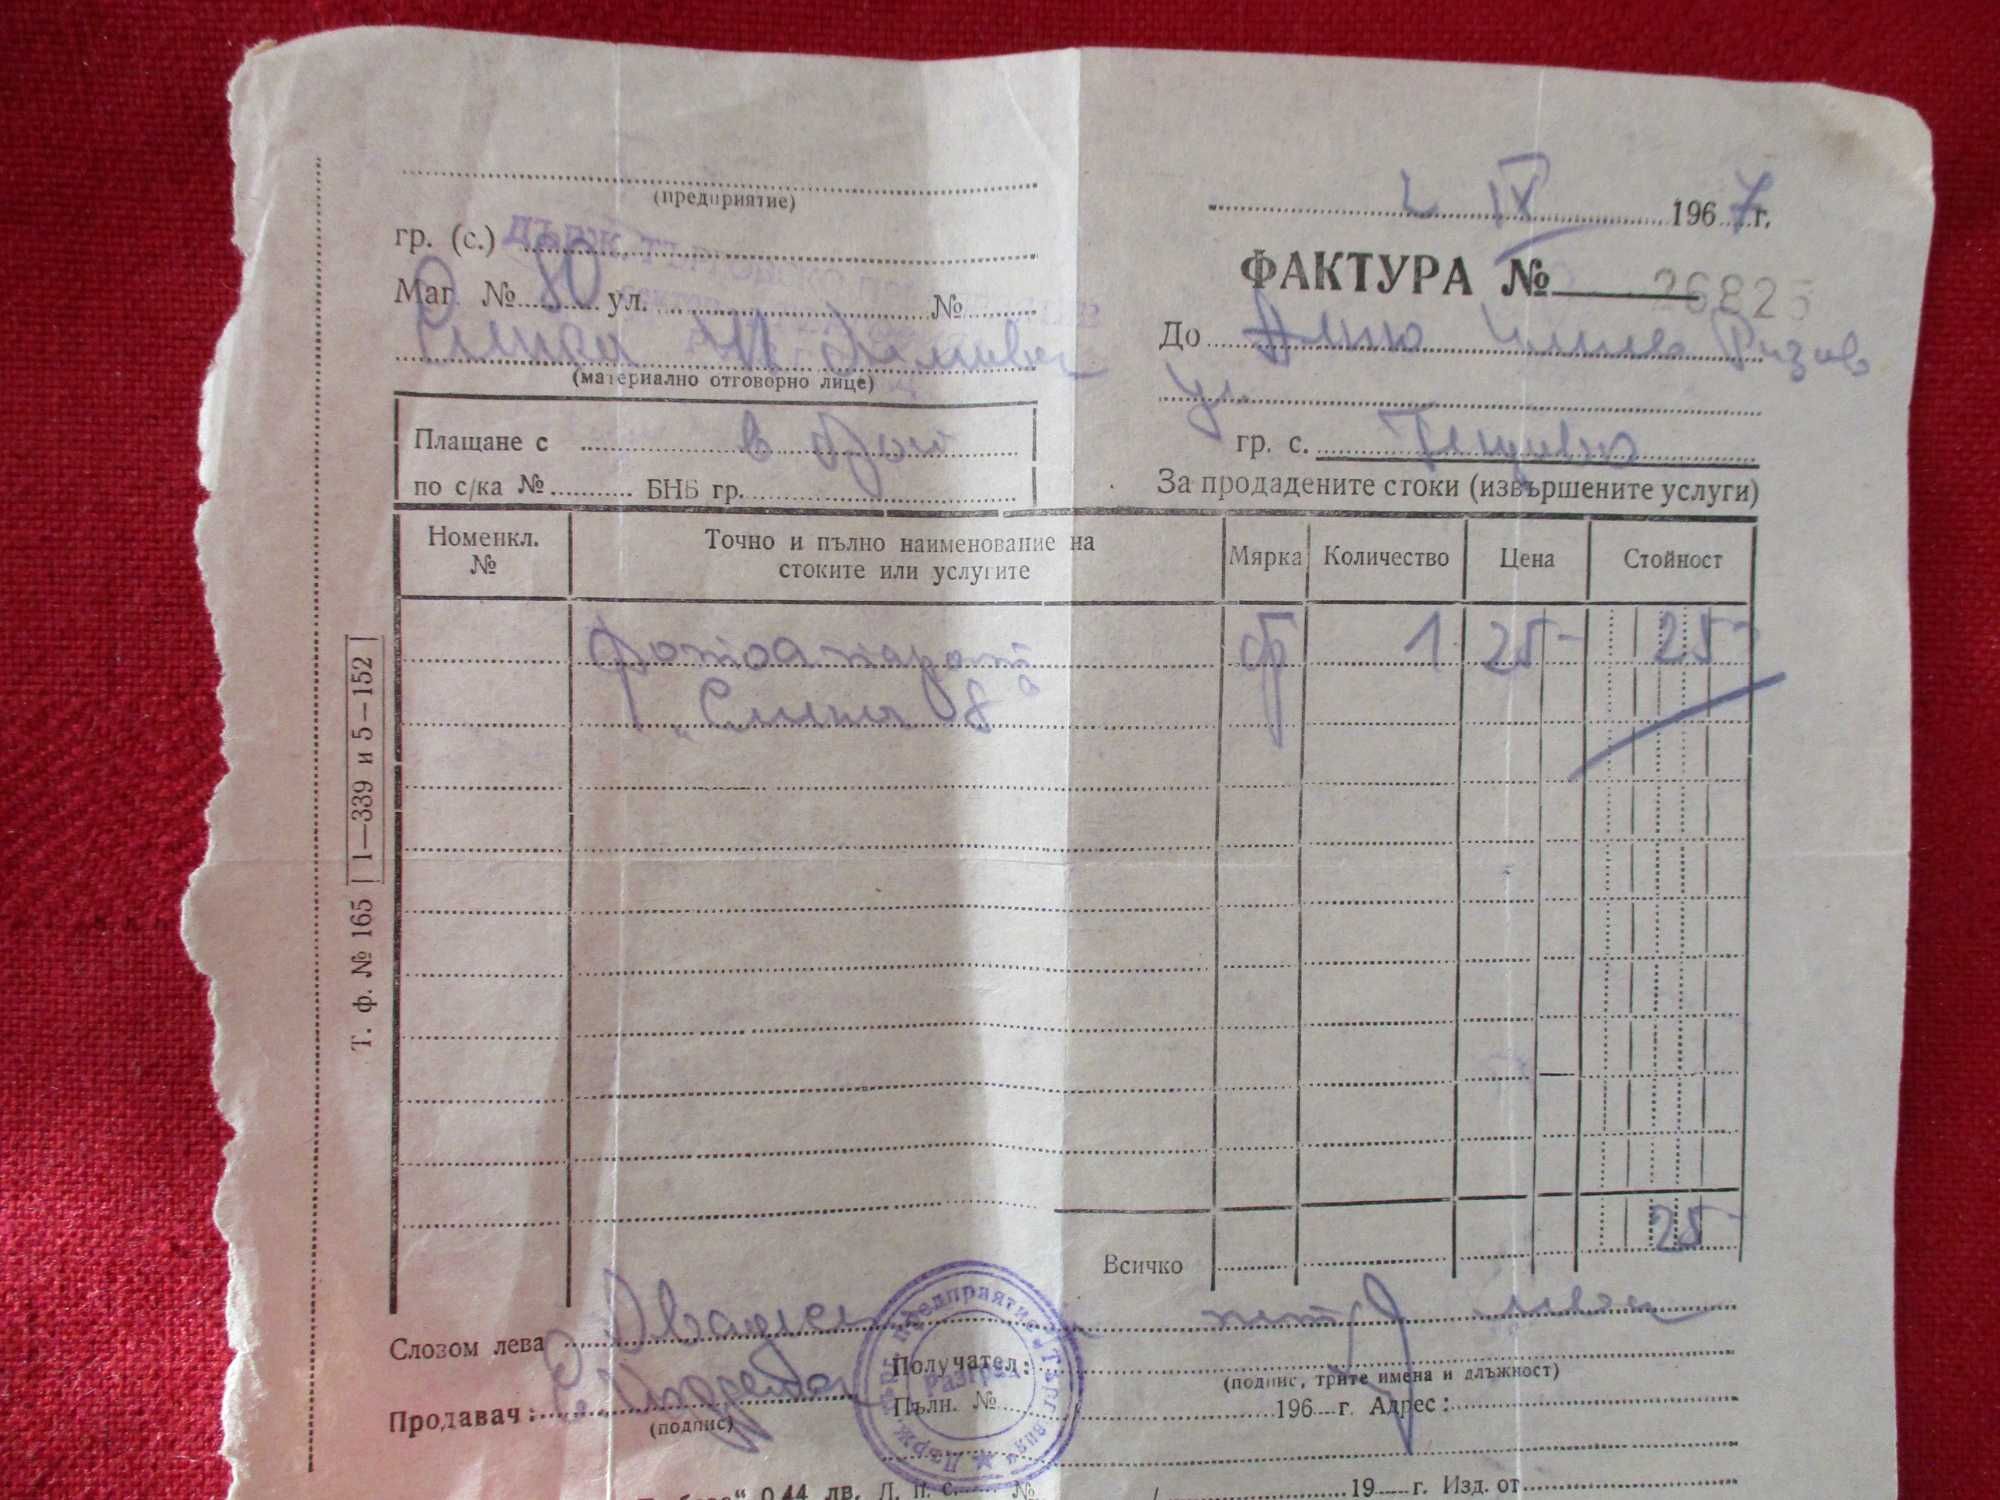 (предприятие)
IX 1967 г.
гр. (с.) ДЪРЖ. ТЪРГОВСКО
ФАКТУРА № 26825
Маг. № 80 ул. №
До
(материално отговорно лице)
ул.
Плащане с в брой
гр. с.
по с/ка № БНБ гр.
За продадените стоки (извършените услуги)
Номенкл. №
Точно и пълно наименование на стоките или услугите
Мярка Количество Цена Стойност
фотоапарат бр 1 25- 25-
„Смена 8"
Т. ф. № 165 | 1—339 и 5—152 |
25-
Всичко
Словом лева Двадесет и пет лева
Получател:
(подпис, трите имена и длъжност)
Продавач:
(подпис)
Пълн. № 196 г. Адрес:
Държ. предприятие „Търговия"
Разград
" 0,44 лв. Л. п. с. № / 19 г. Изд. от